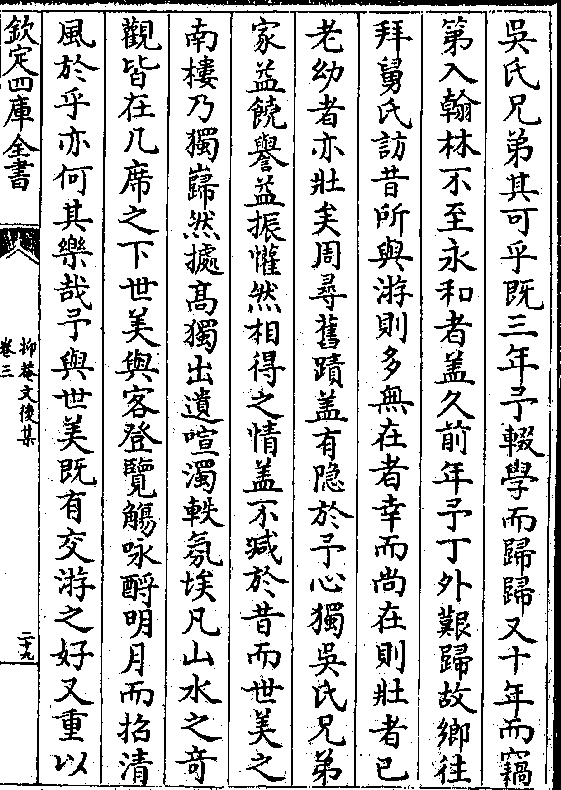 吳氏兄弟其可乎既三年予輟學而歸歸又十年而竊
第入翰林不至永和者盖久前年予丁外艱歸故鄉往
拜舅氏訪昔所與游則多無在者幸而尚在則壯者已
老幼者亦壯矣周尋舊蹟盖有隐於予心獨吳氏兄弟
家益饒譽益振懽然相得之情盖不减於昔而世美之
南樓乃獨巋然據髙獨出遺喧濁軼氛埃凡山水之竒
觀皆在几席之下世美與客登覽觴咏酹明月而招清
風於乎亦何其樂哉予與世美既有交游之好又重以
欽定四庫全書
抑菴文後集
卷三
二十九